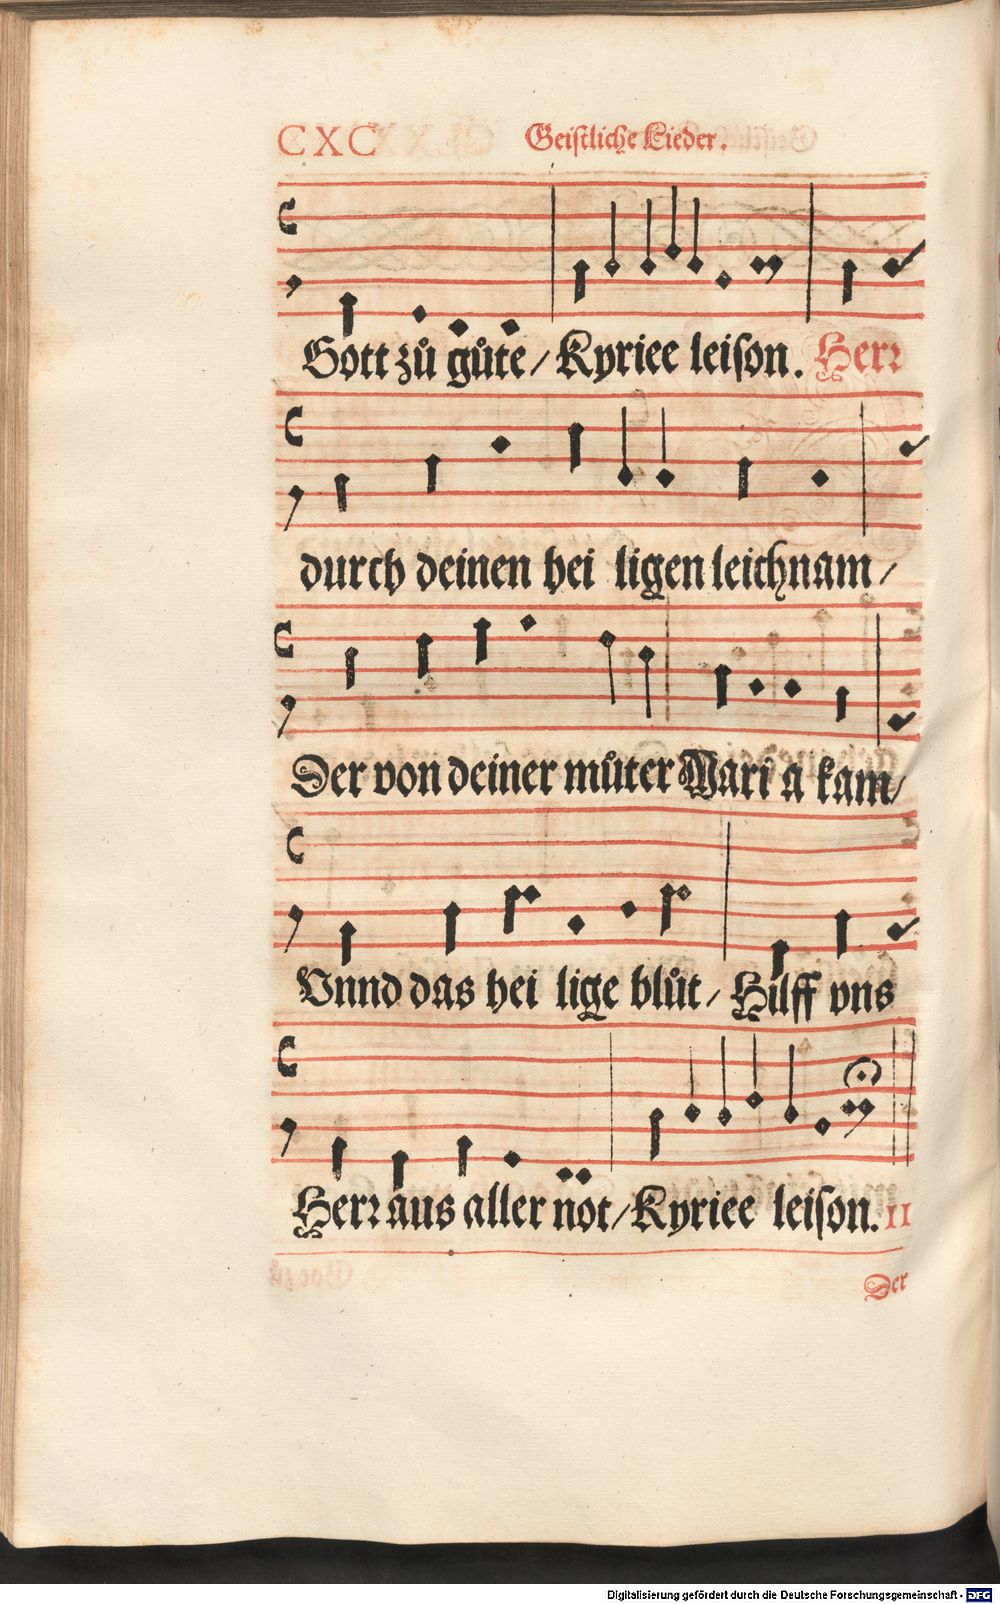 CXC Geistliche Lieder.
Gott zů gůte / Kyriee leison. Herr
durch deinen hei ligen leichnam /
Der von deiner můter Mari a kam /
Vnnd das hei lige blůt / Hilff vns
Herr aus aller not / Kyriee leison. II
Der
Digitalisierung gefördert durch die Deutsche Forschungsgemeinschaft - DFG